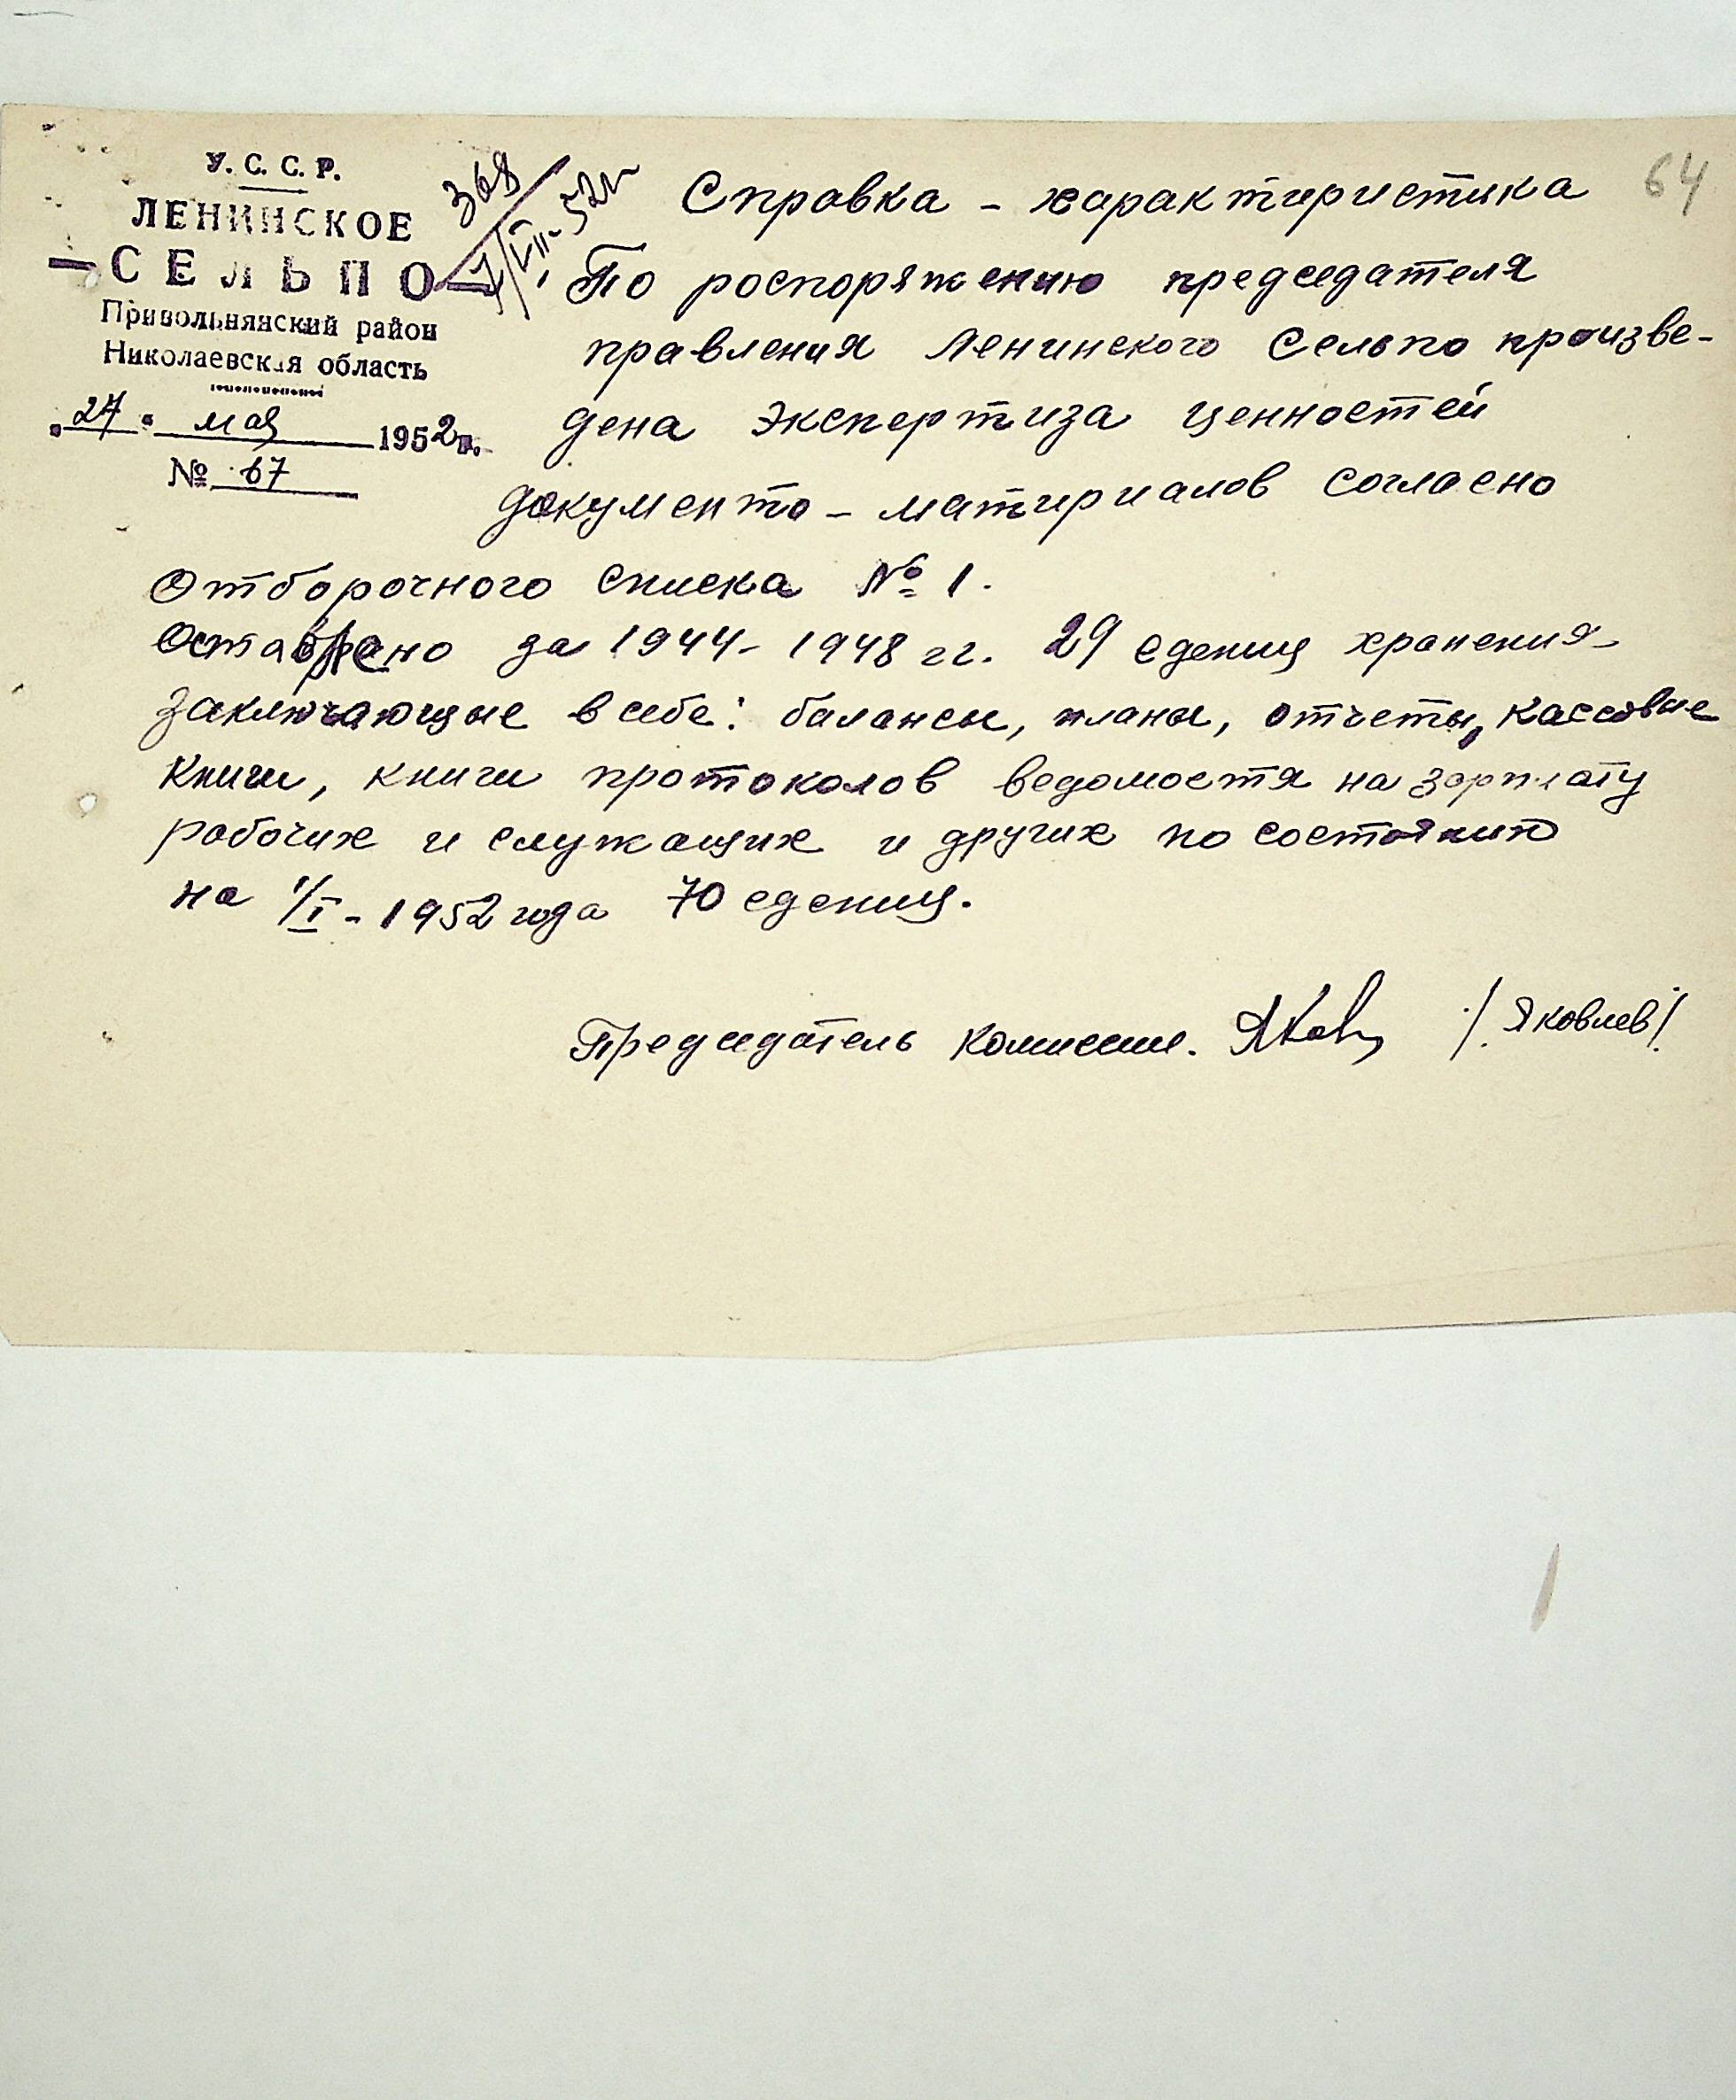 У. С. С. Р.
ЛЕНИНСКОЕ
СЕЛЬПО
Привольнянский район
Николаевская область
"27" мая 1952 г.
№ 67
368
64
Справка - характиристика
По роспоряжению председателя
правления Ленинского Сельпо произве-
дена экспертиза ценностей
документо - матириалов согласно
Отборочного списка № 1.
Оставлено за 1944 - 1948 гг. 29 едениц хранения
заключающие в себе: балансы, планы, отчеты, кассовые
книги, книги протоколов ведомостя на зарплату
робочих и служащих и других по состоянию
на 1/I - 1952 года 70 едениц.
Председатель комиссии. /Яковлев/